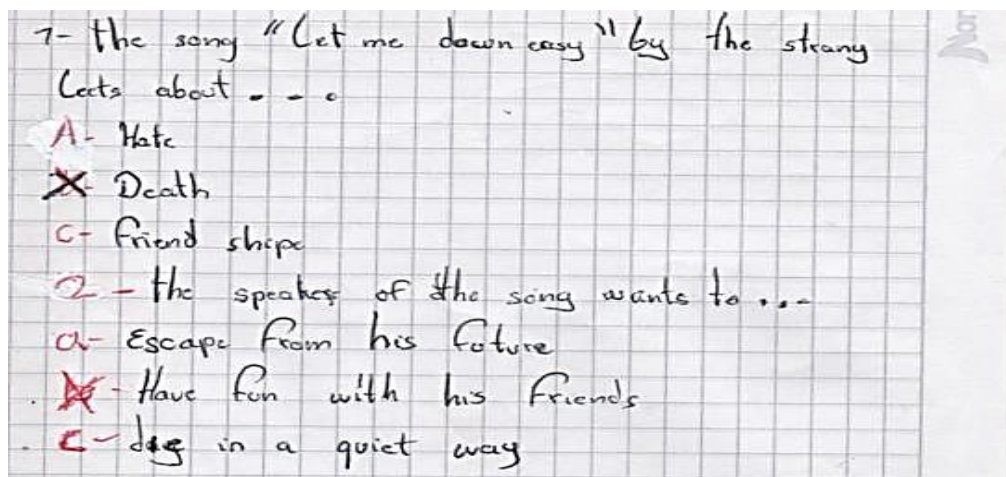 1- the song "Let me down easy" by the strang
Lets about . . .
A- Hate
Death
C- friend shipe
2 - the speaker of the song wants to ...
a- Escape from his future
- Have fun with his friends
c- die in a quiet way